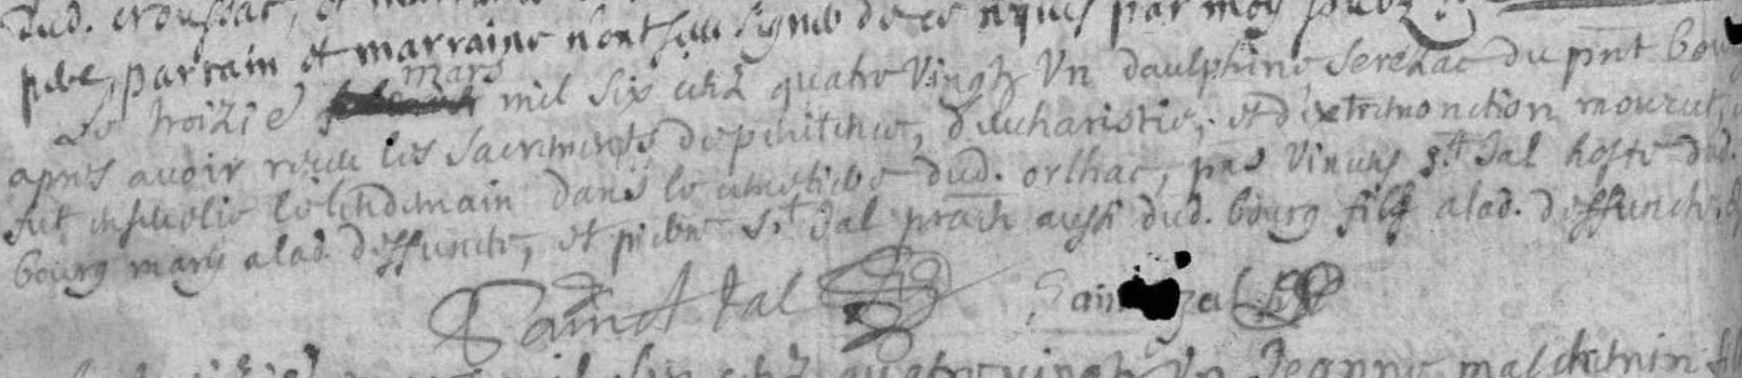 dud. croussac, et
pere, parrain et marraine nont sceu signé de ce requis par moy
mars
Le troizie mil six cens quatre vingtz un daulphine Serezac du pnt bou
apres avoir receu les sacrements de penitence, d'eucharistie, et d'extremonction mourut,
fut ensevelie le lendemain dans le cimetiere dud. orlhac, pns Vincens St Jal hoste dud.
bourg mary alad. deffuncte, et pierre St Jal prach aussi dud. bourg filz alad. deffuncte
Sainct Jal Sain
mil six cens quatre vingtz un Jeanne